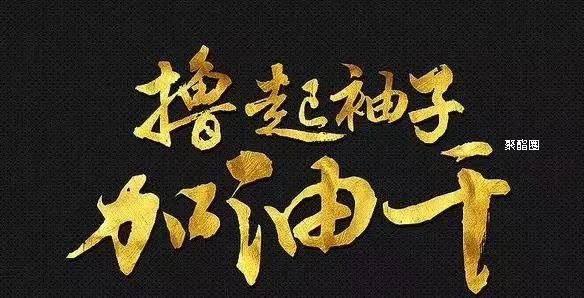 撸起袖子
加油干
聚酯圈